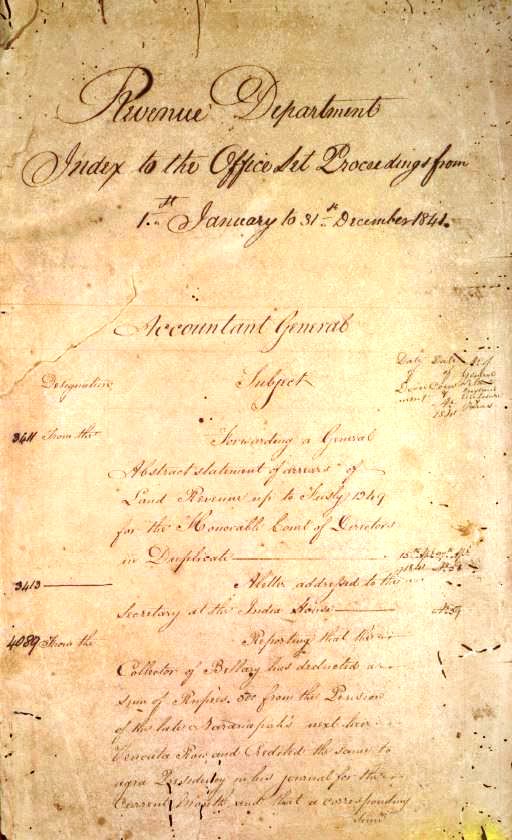 Revenue Department
Index to the Office Set Proceedings from
1st January to 31st December 1841.
Accountant General
Designation Subject
3411 From the Forwarding a General
Abstract statement of arrears of
Land Revenue up to Fusly 1249
for the Honorable Court of Directors
in Duplicate
3413 A letter addressed to the
Secretary at the India House
4089 From the Reporting that the
Collector of Bellary has deducted a
sum of Rupees from the Pension
of the late next heir
Vencata Row and Credited the same to
in his journal for the
Current Month and that a corresponding